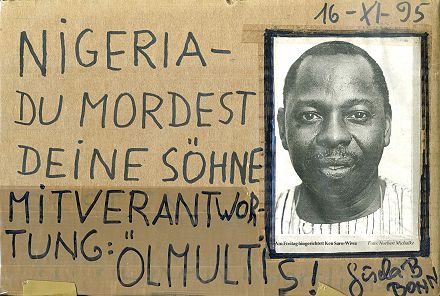 16-XI-95
NIGERIA-
DU MORDEST
DEINE SÖHNE
MITVERANTWOR-
TUNG:
ÖLMULTIS!
Am Freitag hingerichtet: Ken Saro-Wiwa Foto: Norbert Michalke
Gisela B
BONN